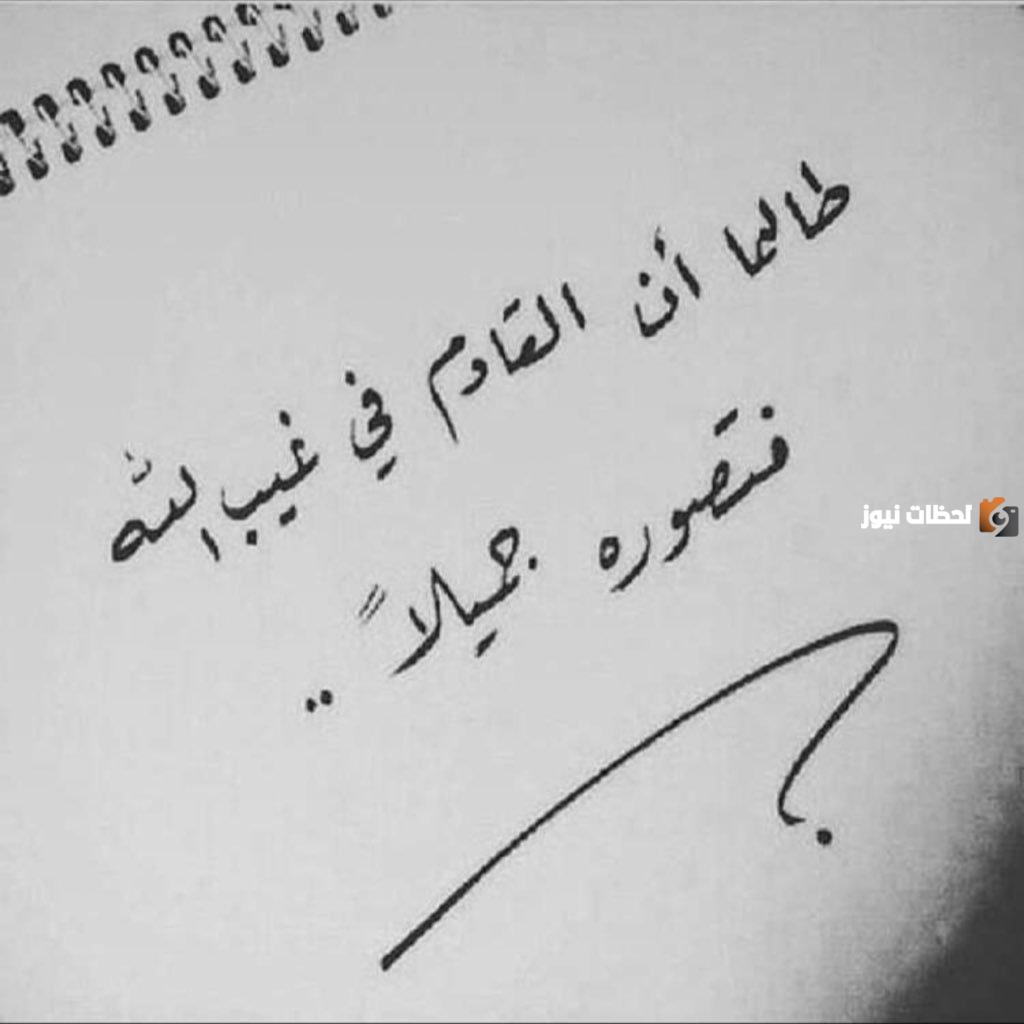 طالما أن القادم في غيب الله
فتصوره جميلاً ..
لحظات نيوز